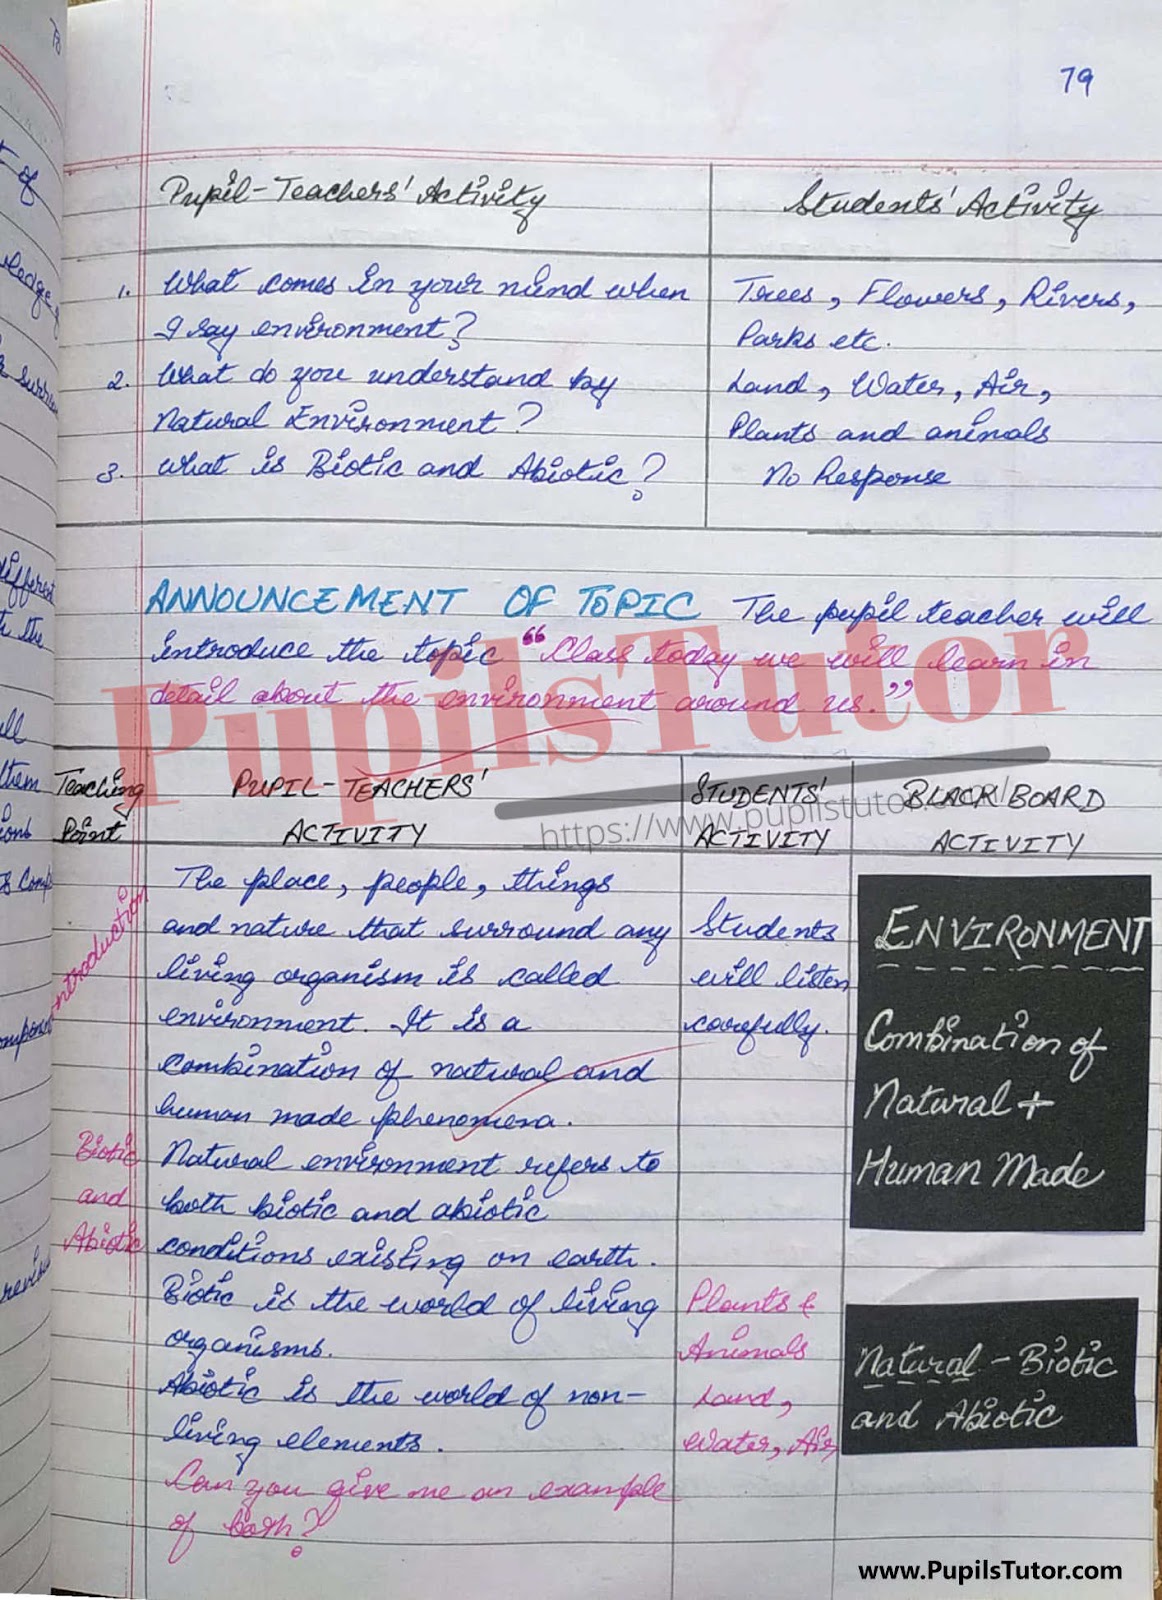 79
Pupil-Teachers' Activity
Students' Activity
1. What comes in your mind when
I say environment?
Trees, Flowers, Rivers,
Parks etc.
2. What do you understand by
Natural Environment?
Land, Water, Air,
Plants and animals
3. What is Biotic and Abiotic?
No Response
ANNOUNCEMENT OF TOPIC The pupil teacher will
introduce the topic "Class today we will learn in
detail about the environment around us."
PupilsTutor
https://www.pupilstutor.com/
Teaching
Point
PUPIL-TEACHERS'
ACTIVITY
STUDENTS'
ACTIVITY
BLACK BOARD
ACTIVITY
Introduction
The place, people, things
and nature that surround any
living organism is called
environment. It is a
combination of natural and
human made phenomena.
Students
will listen
carefully.
ENVIRONMENT
Combination of
Natural +
Human Made
Biotic
and
Abiotic
Natural environment refers to
both biotic and abiotic
conditions existing on earth.
Biotic is the world of living
organisms.
Abiotic is the world of non-
living elements.
Can you give me an example
of both?
Plants &
Animals
Land,
Water, Air,
Natural - Biotic
and Abiotic
www.PupilsTutor.com